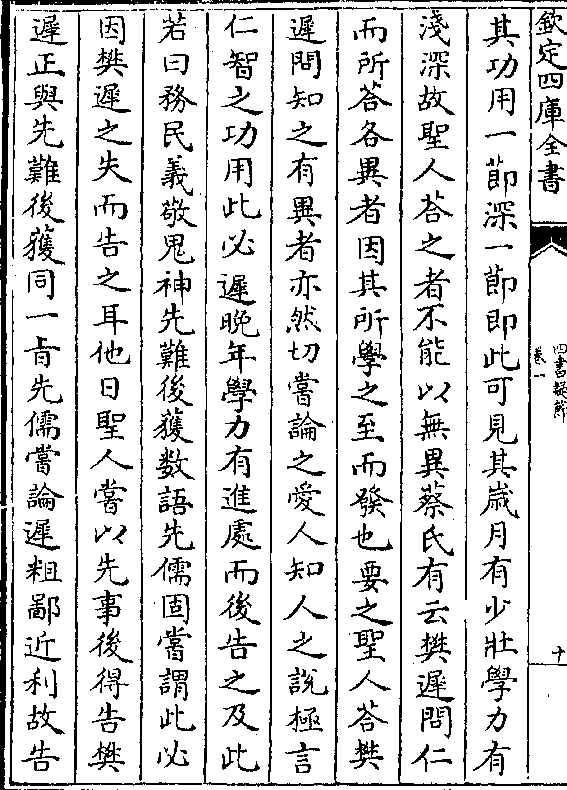 欽定四庫全書
四書疑節
卷一
十
其功用一節深一節即此可見其歲月有少壯學力有
淺深故聖人荅之者不能以無異蔡氏有云樊遲問仁
而所荅各異者因其所學之至而發也要之聖人荅樊
遲問知之有異者亦然切嘗論之愛人知人之說極言
仁智之功用此必遲晚年學力有進處而後告之及此
若曰務民義敬鬼神先難後獲数語先儒固嘗謂此必
因樊遲之失而告之耳他日聖人嘗以先事後得告樊
遲正與先難後獲同一㫖先儒嘗論遲粗鄙近利故告